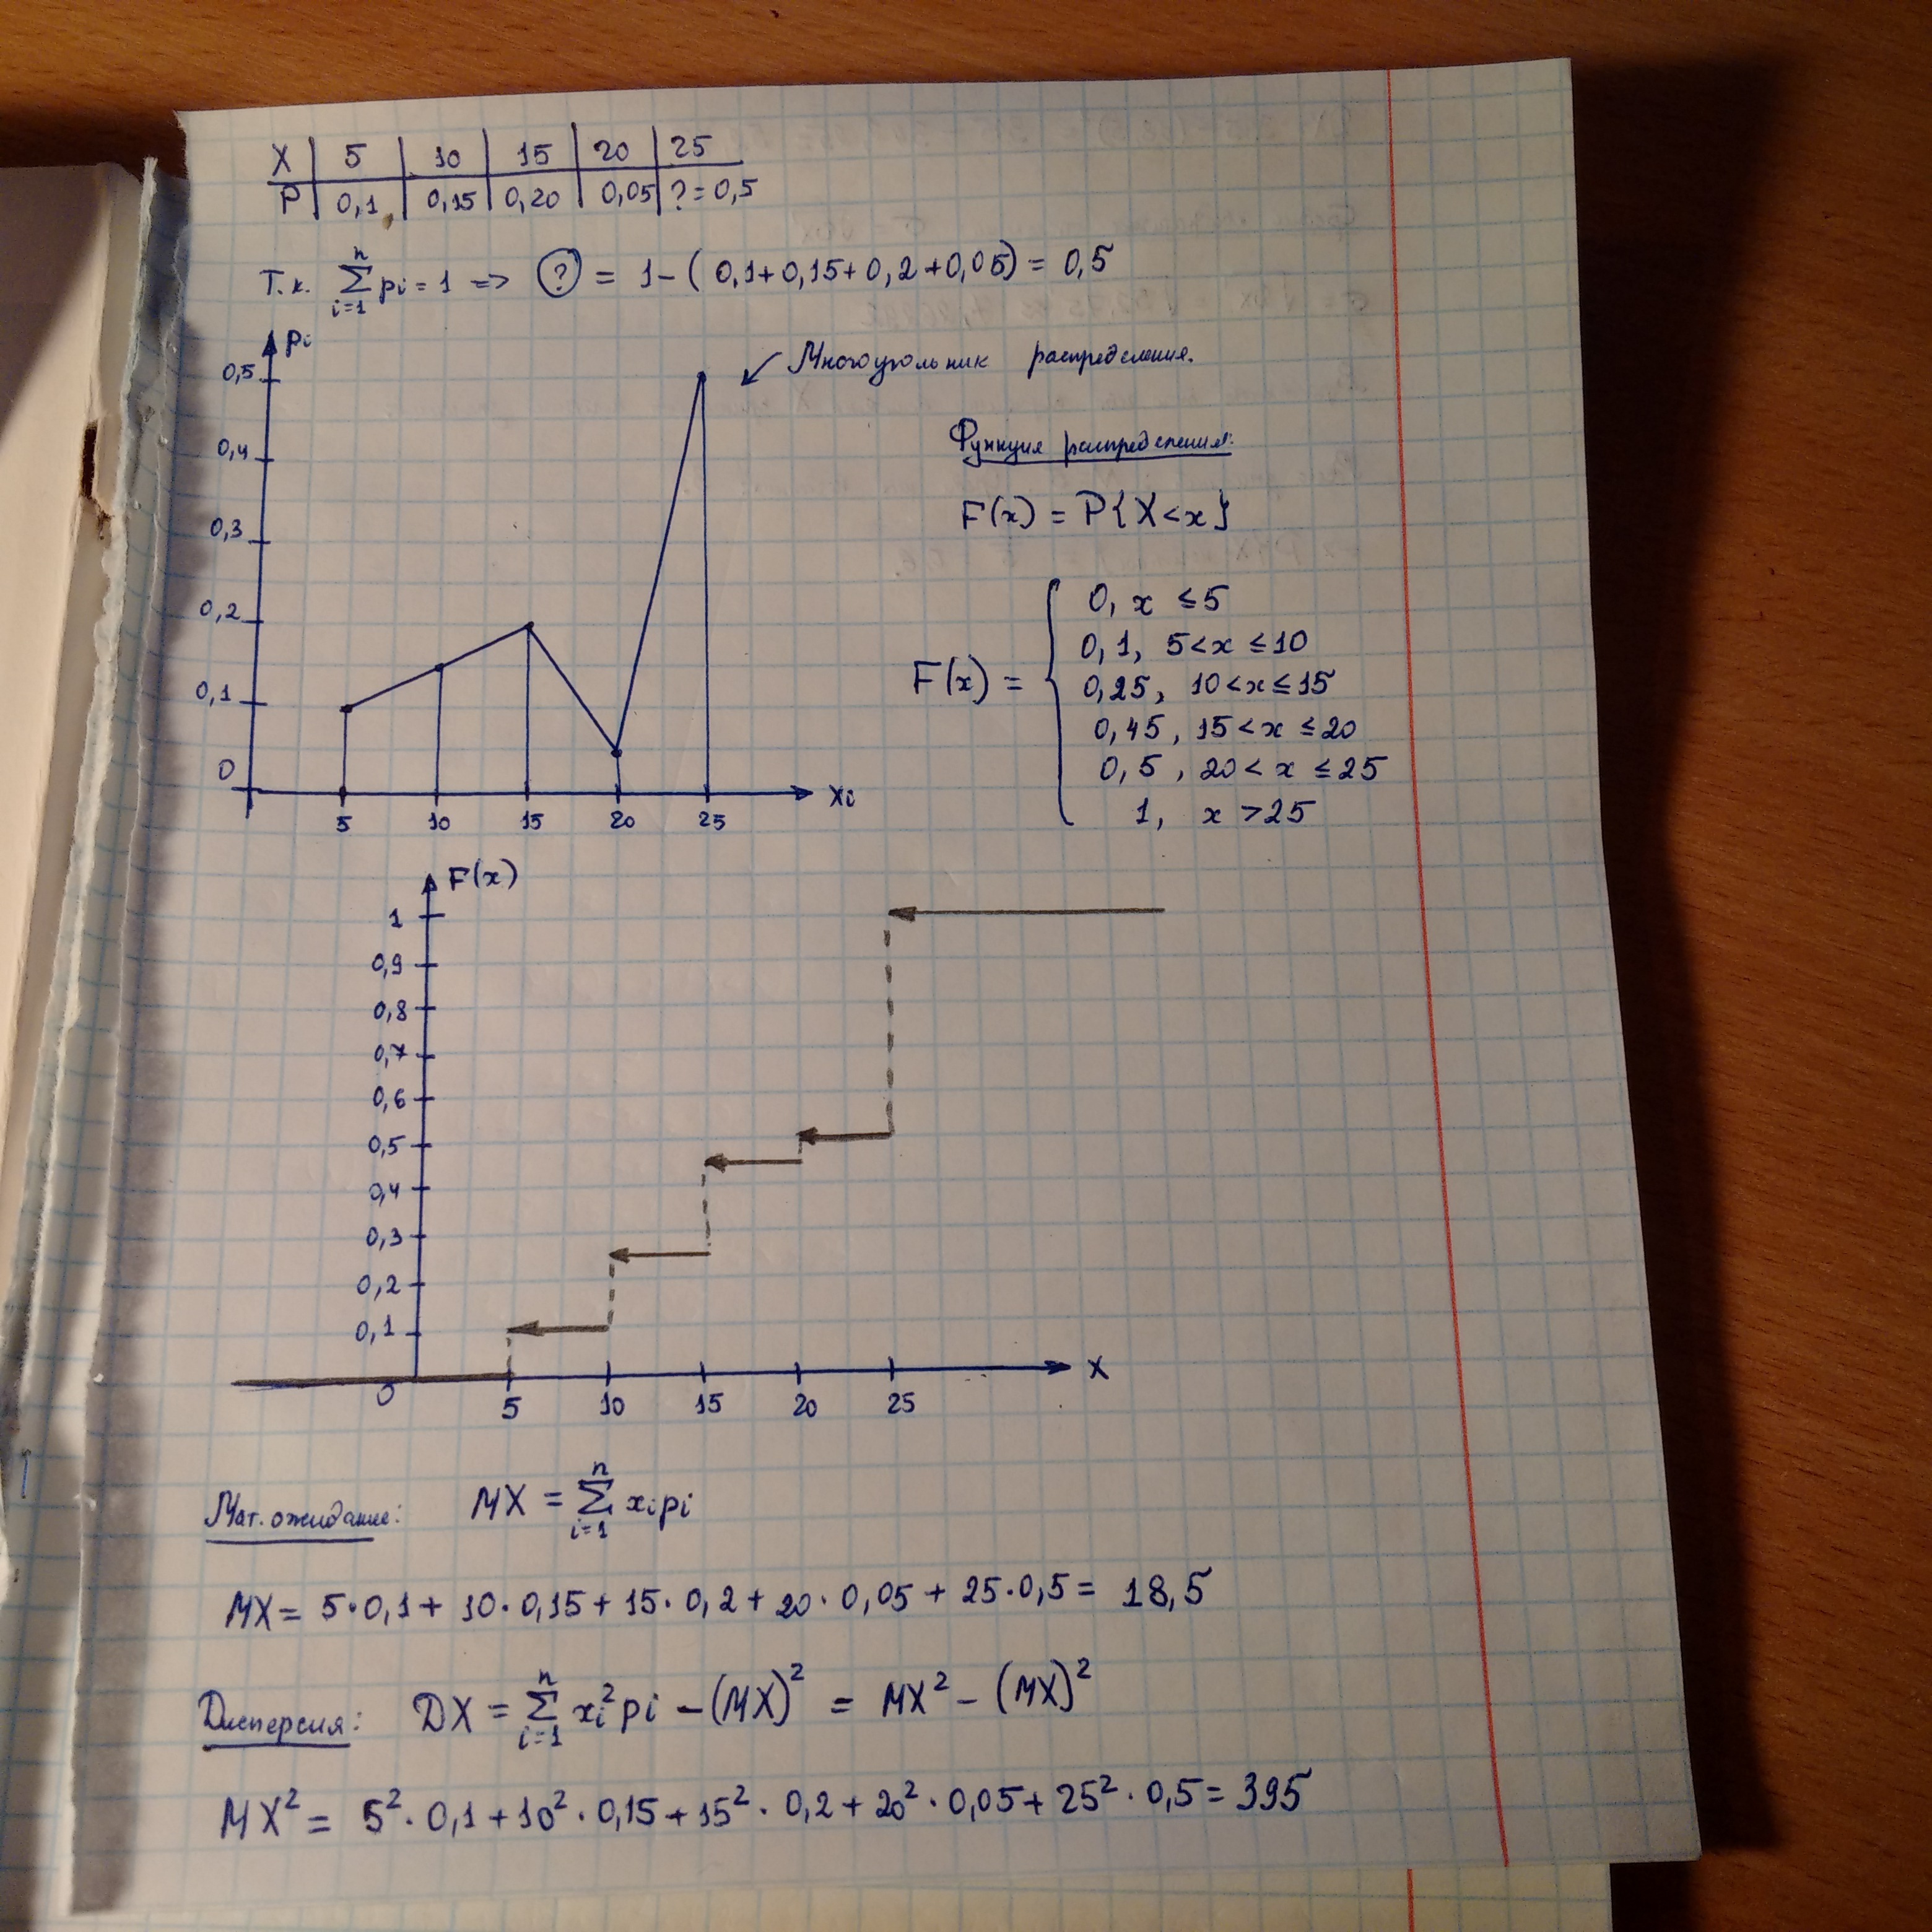 X 5 10 15 20 25
P 0,1 0,15 0,20 0,05 ?=0,5
Т.к. n∑i=1 pi = 1 => ? = 1-(0,1+0,15+0,2+0,05) = 0,5
pi
Многоугольник распределения.
0,5
0,4
0,3
0,2
0,1
0
5 10 15 20 25 xi
Функция распределения:
F(x) = P{X<x}
F(x) =
0, x ≤5
0,1, 5<x ≤10
0,25, 10<x≤15
0,45, 15<x ≤20
0,5, 20<x ≤25
1, x >25
F(x)
1
0,9
0,8
0,7
0,6
0,5
0,4
0,3
0,2
0,1
0
5 10 15 20 25 X
Мат. ожидание: MX = n∑i=1 xipi
MX = 5·0,1 + 10·0,15 + 15·0,2 + 20·0,05 + 25·0,5 = 18,5
Дисперсия: DX = n∑i=1 xi²pi - (MX)² = MX² - (MX)²
MX² = 5²·0,1 + 10²·0,15 + 15²·0,2 + 20²·0,05 + 25²·0,5 = 395